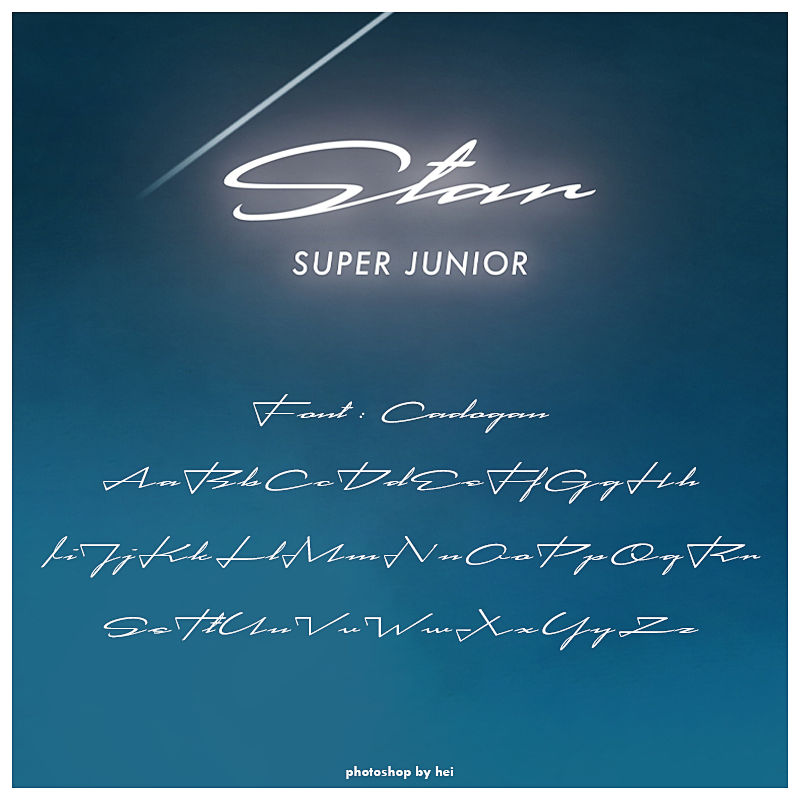 Star
SUPER JUNIOR
Font : Cadogan
AaBbCcDdEeFfGgHh
IiJjKkLlMmNnOoPpQqRr
SsTtUuVvWwXxYyZz
photoshop by hei